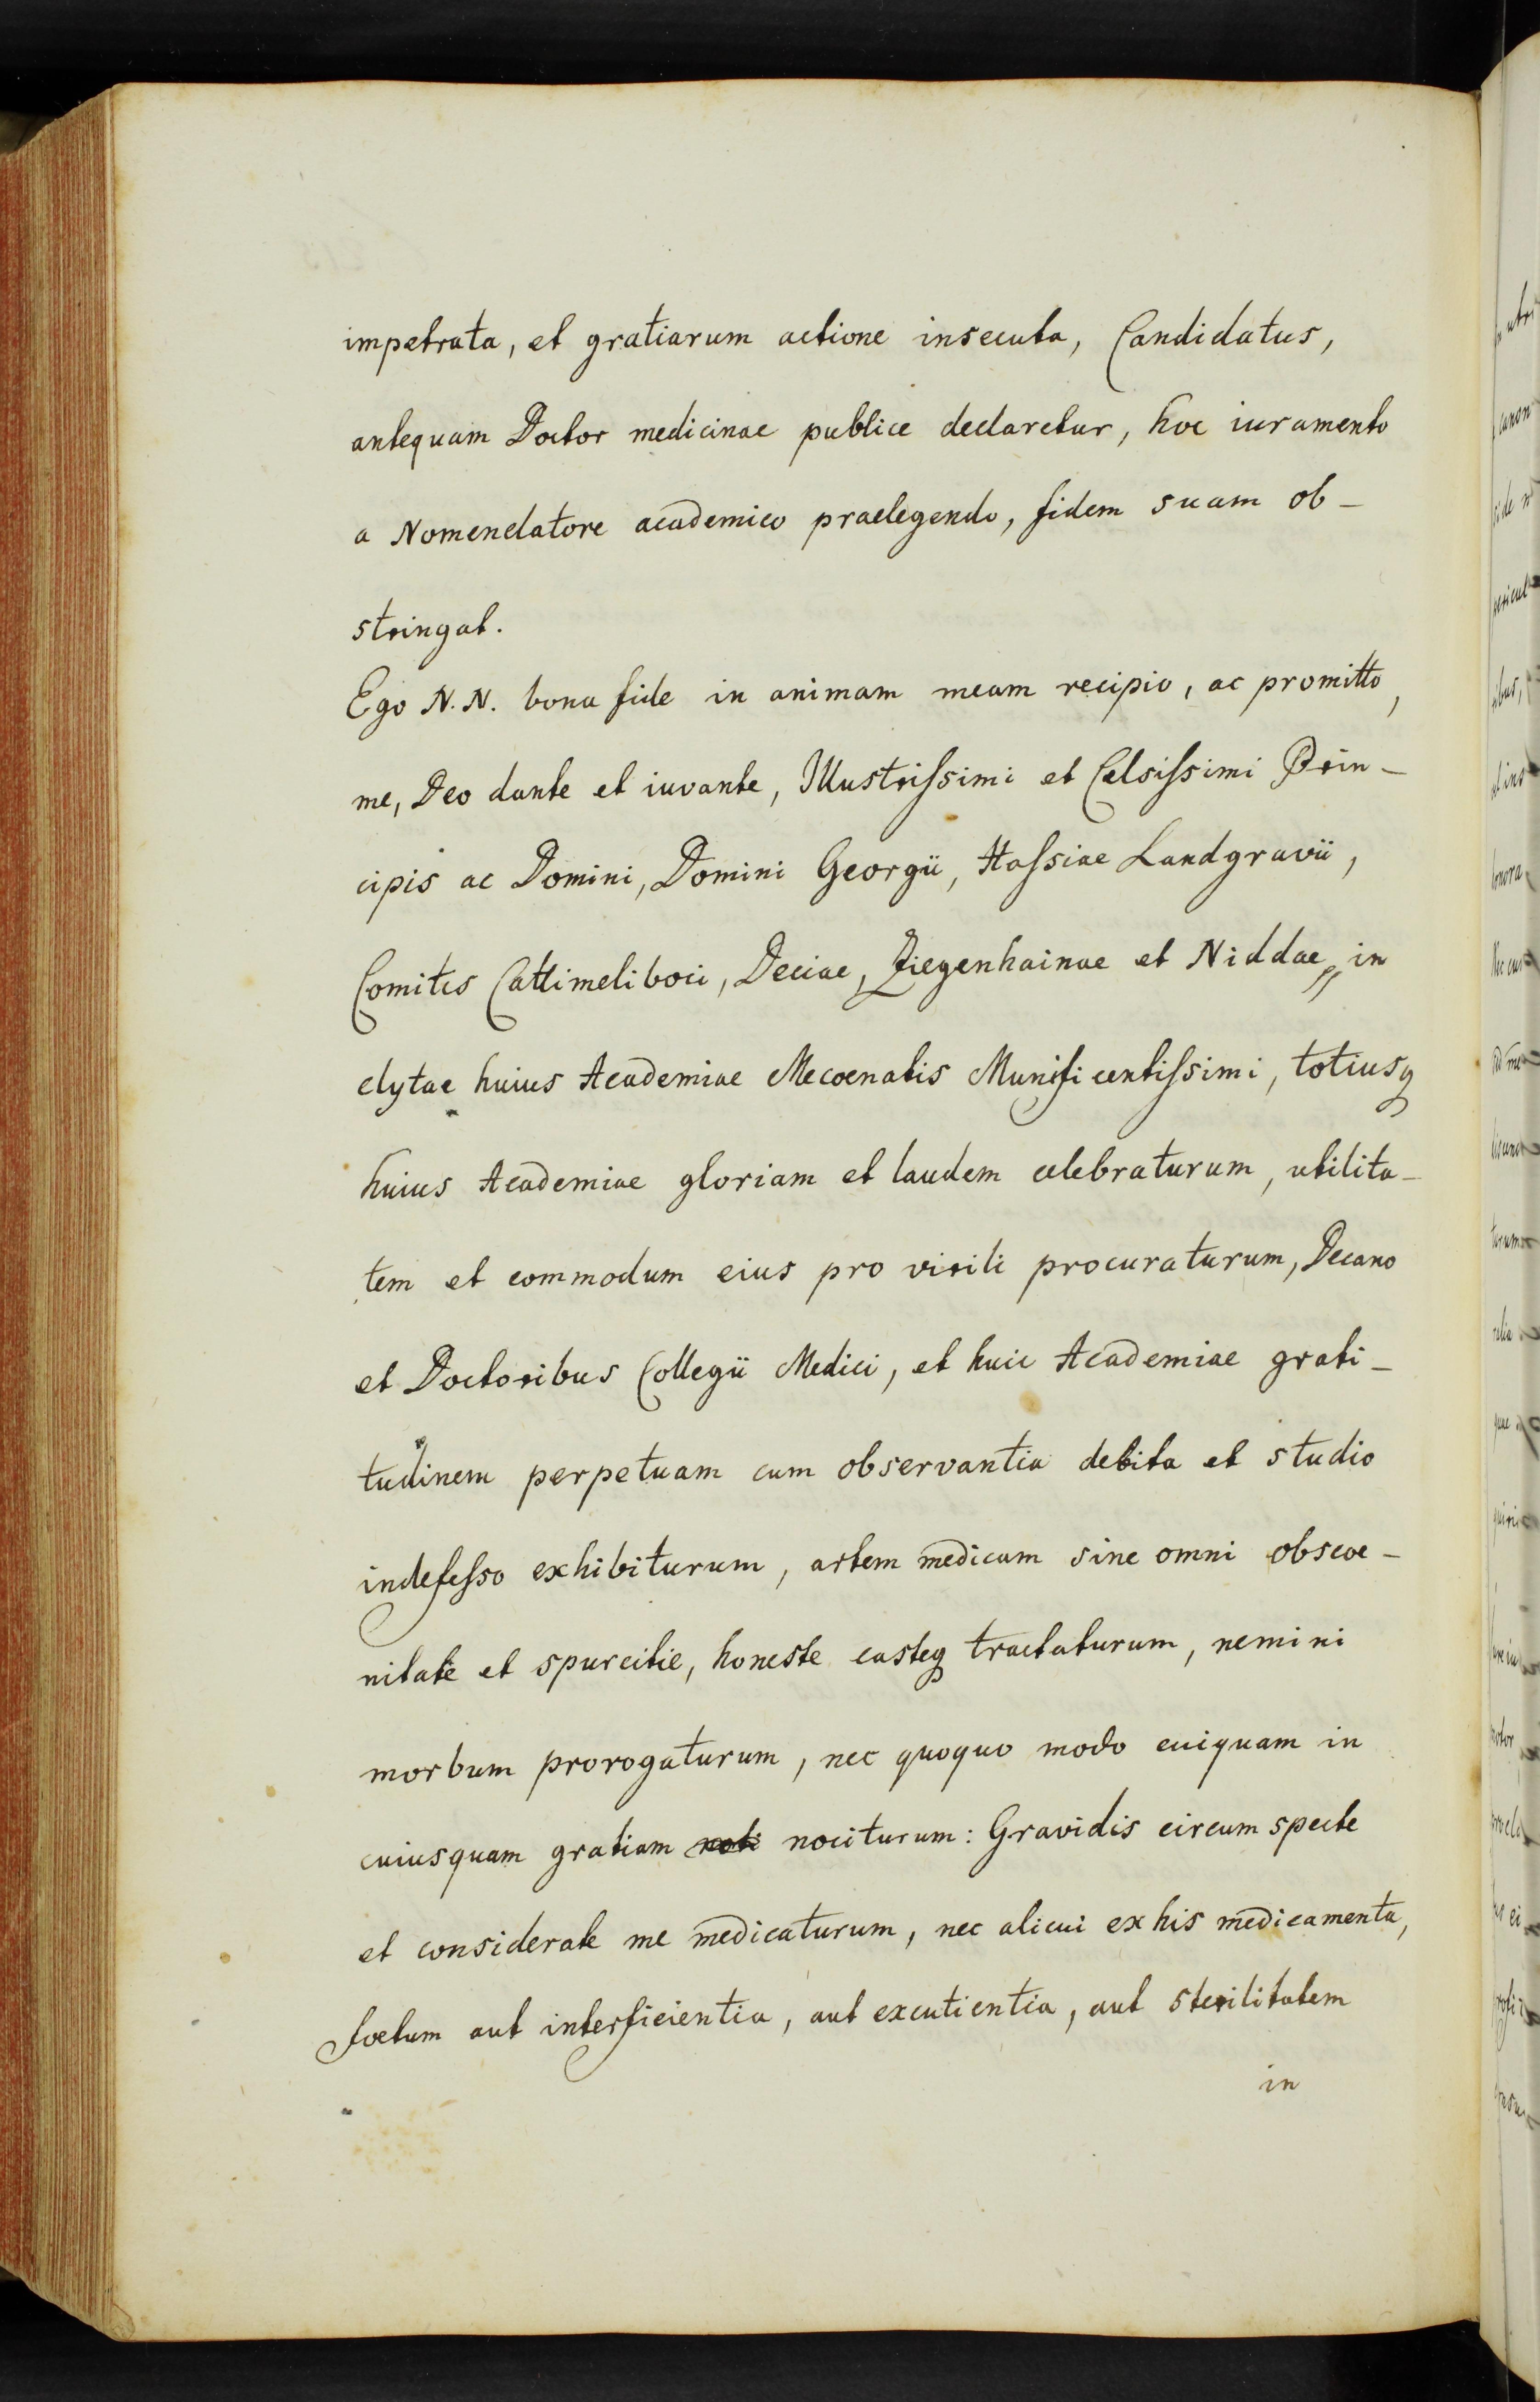 impetrata, et gratiarum actione insecuta, Candidatus,
antequam Doctor medicinae publice declaretur, hoc iuramento
a Nomenclatore academico praelegendo, fidem suam ob-
stringat.
Ego N. N. bona fide in animam meam recipio, ac promitto,
me, Deo dante et iuvante, Illustrissimi et Celsissimi Prin-
cipis ac Domini, Domini Georgii, Hassiae Landgravii,
Comitis Cattimeliboci, Deciae, Ziegenhainae et Niddae, in
clytae huius Academiae Mecoenatis Munificentissimi, totiusq
huius Academiae gloriam et laudem celebraturum, utilita-
tem et commodum eius pro virili procuraturum, Decano
et Doctoribus Collegii Medici, et huic Academiae grati-
tudinem perpetuam cum observantia debita et studio
indefesso exhibiturum, artem medicam sine omni obscoe-
nitate et spurcitie, honeste casteq tractaturum, nemini
morbum prorogaturum, nec quoquo modo cuiquam in
cuiusquam gratiam nociturum: Gravidis circumspecte
et considerate me medicaturum, nec alicui ex his medicamenta,
foetum aut interficientia, aut excutientia, aut sterilitatem
in